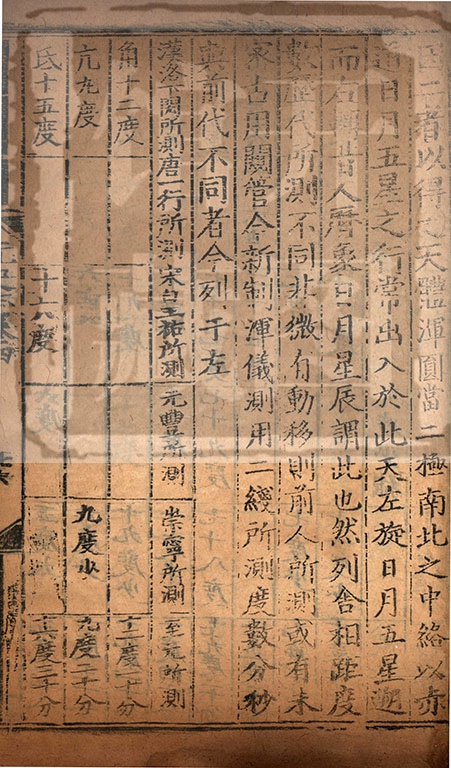 二者以得之天體渾圓當二極南北之中絡以赤
道日月五星之行常出入於此天左旋日月五星遡
而右轉昔人曆象日月星辰謂此也然列舍相距度
數歷代所測不同非微有動移則前人所測或有未
密古用闚管今新制渾儀測用二綫所測度數分秒
與前代不同者今列于左
漢洛下閎所測 唐一行所測 宋皇祐所測 元豐所測 崇寧所測 至元所測
角十二度 十二度一十分
亢九度 九度少 九度二十分
氐十五度 十六度 十六度三十分